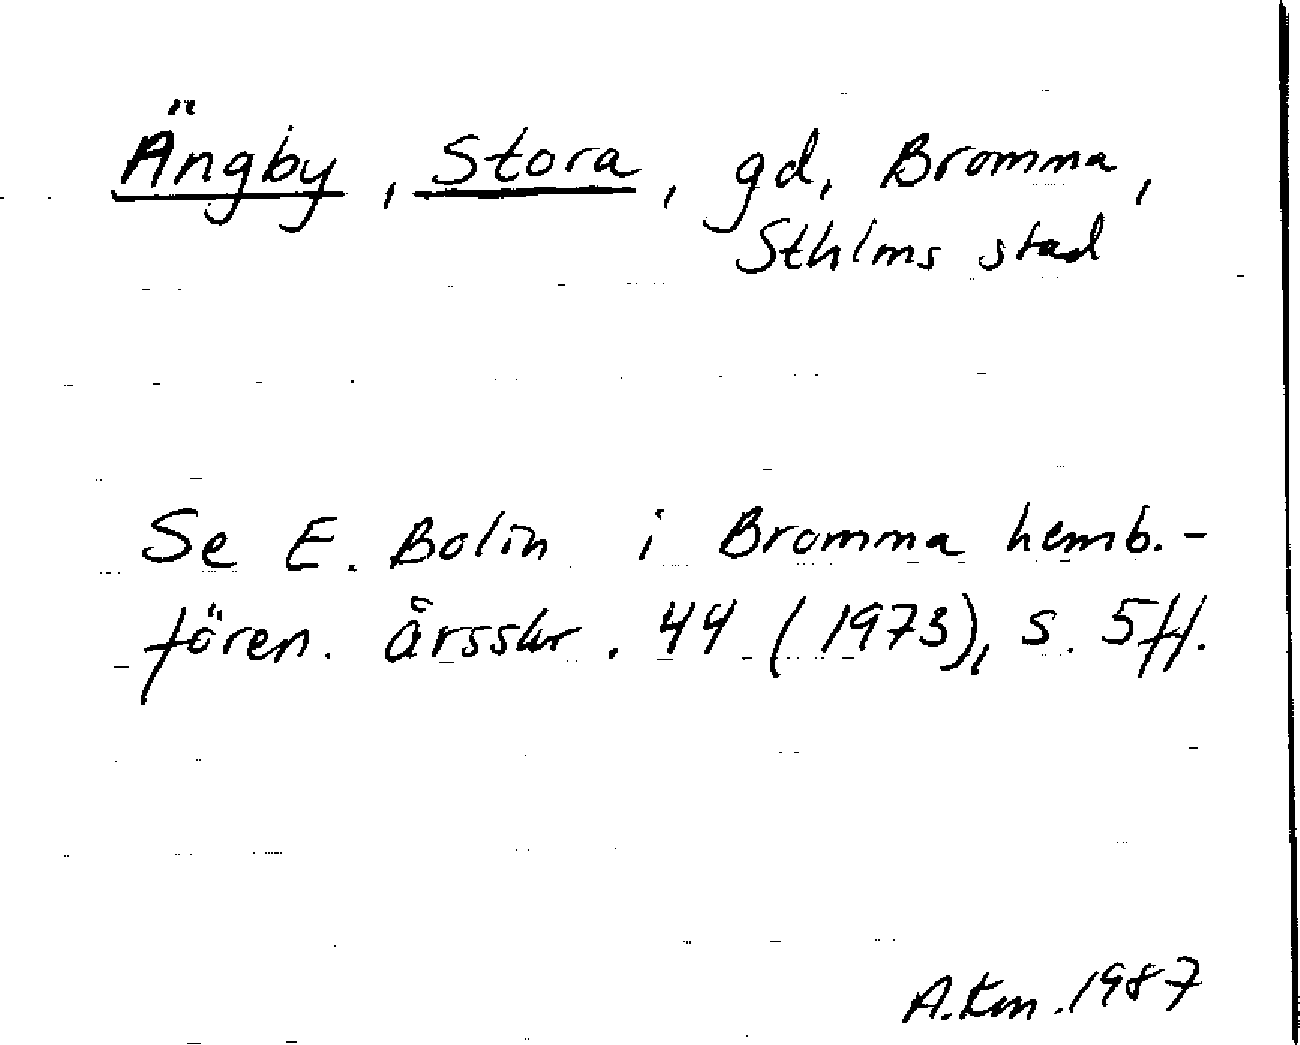 Ängby, Stora, gd, Bromma,
Sthlms stad
Se E. Bolin i Bromma hemb.-
fören. årsskr. 44 (1973), s. 5ff.
A.Km. 1987